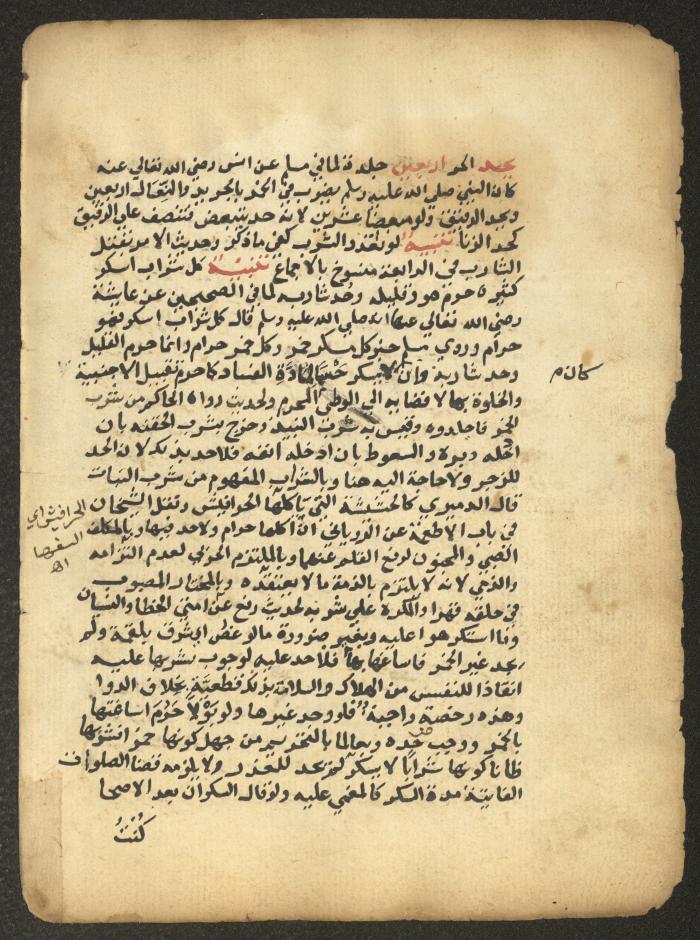 يحد الحر اربعين جلدة لما في مسلم عن انس رضي الله تعالي عنه
كان النبي صلي الله عليه وسلم يضرب في الخمر بالجريد والنعال اربعين
ويحد الرقيق ولو مبعضا عشرين لانه حد يتبعض فتنصف علي الرقيق
كحد الزنا تنبيه لو تعدد الشرب كفي ما ذكر وحديث الامر بقتل
الشارب في الرابعة منسوخ بالاجماع تنبيه كل شراب اسكر
كثيره حرم هو وقليله وحد شاربه لما في الصحيحين عن عايشة
رضي الله تعالي عنها انه صلي الله عليه وسلم قال كل شراب اسكر فهو
حرام وروي مسلم خبر كل مسكر خمر وكل خمر حرام وانما حرم القليل
وحد شاربه وان كان لا يسكر حسما لمادة الفساد كما حرم تقبيل الاجنبية
والخلوة بها لافضايه الي الوطئ المحرم ولحديث رواه الحاكم من شرب
الخمر فاجلدوه وقيس به شرب النبيذ وخرج بشرب الحقنة بان
ادخله دبره والسعوط بان ادخله انفه فلا حد بذلك لان الحد
للزجر ولا حاجة اليه هنا وبالشراب المفهوم من شرب النبات
قال الدميري كالحشيشة التي ياكلها الحرافيش ونقل الشيخان
في باب الاطعمة عن الروياني ان اكلها حرام ولا حد فيها وبالمكلف
الصبي والمجنون لرفع القلم عنهما وبالملتزم الحربي لعدم التزامه
والذمي لانه لا يلتزم بالذمة ما لا يعتقده وبالمختار المصبوب
في حلقه قهرا والمكره علي شربه لحديث رفع عن امتي الخطا والنسيان
وما استكرهوا عليه وبغير ضرورة ما لو غص اي شرق بلقمة ولم
يجد غير الخمر فاساغها بها فلا حد عليه لوجوب شربها عليه
انقاذا للنفس من الهلاك والسلامة بذلك قطعية بخلاف الدوا
وهذه رخصة واجبة فلو وجد غيرها ولو بولا حرم اساغتها
بالخمر ووجب حده وبعالما بالتحريم من جهل كونها خمرا فشربها
ظانا كونها شرابا لا يسكر لم يحد للعذر ولا يلزمه قضا الصلوات
الفايتة مدة السكر كالمغمي عليه ولو قال السكران بعد الاصحا
كنت
كان م
الحرافيش اي